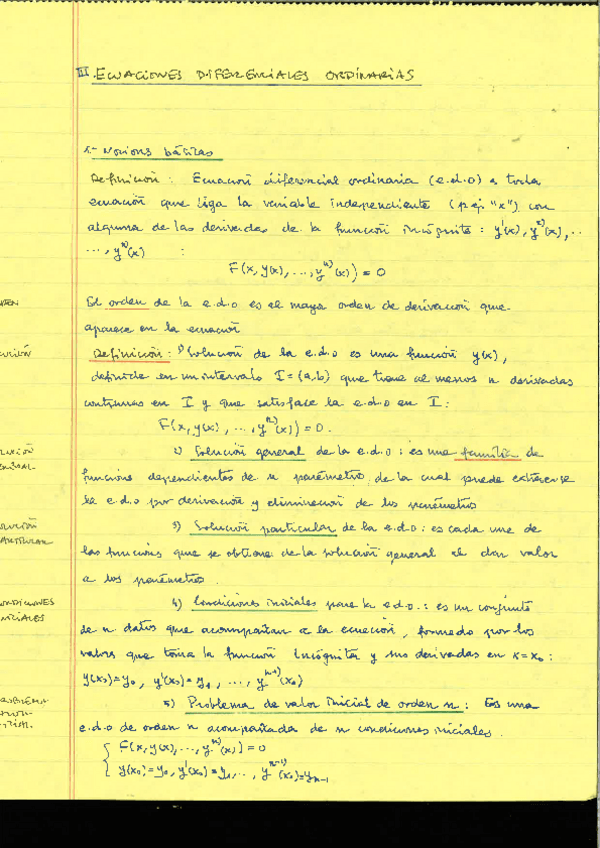 III. ECUACIONES DIFERENCIALES ORDINARIAS
1.- Nociones básicas
Definición: Ecuación diferencial ordinaria (e.d.o) es toda
ecuación que liga la variable independiente (p.ej. "x") con
alguna de las derivadas de la función incógnita: y'(x), y''(x), ..
..., y^n)(x) :
F(x, y(x), ..., y^n)(x)) = 0
El orden de la e.d.o es el mayor orden de derivación que
aparece en la ecuación
Definición: 1) Solución de la e.d.o es una función y(x),
definida en un intervalo I = (a,b) que tiene al menos n derivadas
continuas en I y que satisface la e.d.o en I:
F(x, y(x), ..., y^n)(x)) = 0.
2) Solución general de la e.d.o: es una familia de
funciones dependientes de n parámetros, de la cual puede extraerse
la e.d.o por derivación y eliminación de los parámetros
3) Solución particular de la e.d.o: es cada una de
las funciones que se obtiene de la solución general al dar valor
a los parámetros.
4) Condiciones iniciales para la e.d.o.: es un conjunto
de n datos que acompañan a la ecuación, formado por los
valores que toma la función incógnita y sus derivadas en x = x₀:
y(x₀)=y₀, y'(x₀)=y₁, ..., y^n-1)(x₀)
5) Problema de valor inicial de orden n: Es una
e.d.o de orden n acompañada de n condiciones iniciales.
{ F(x, y(x), ..., y^n)(x)) = 0
y(x₀)=y₀, y'(x₀)=y₁, ..., y^n-1)(x₀)=yₙ₋₁